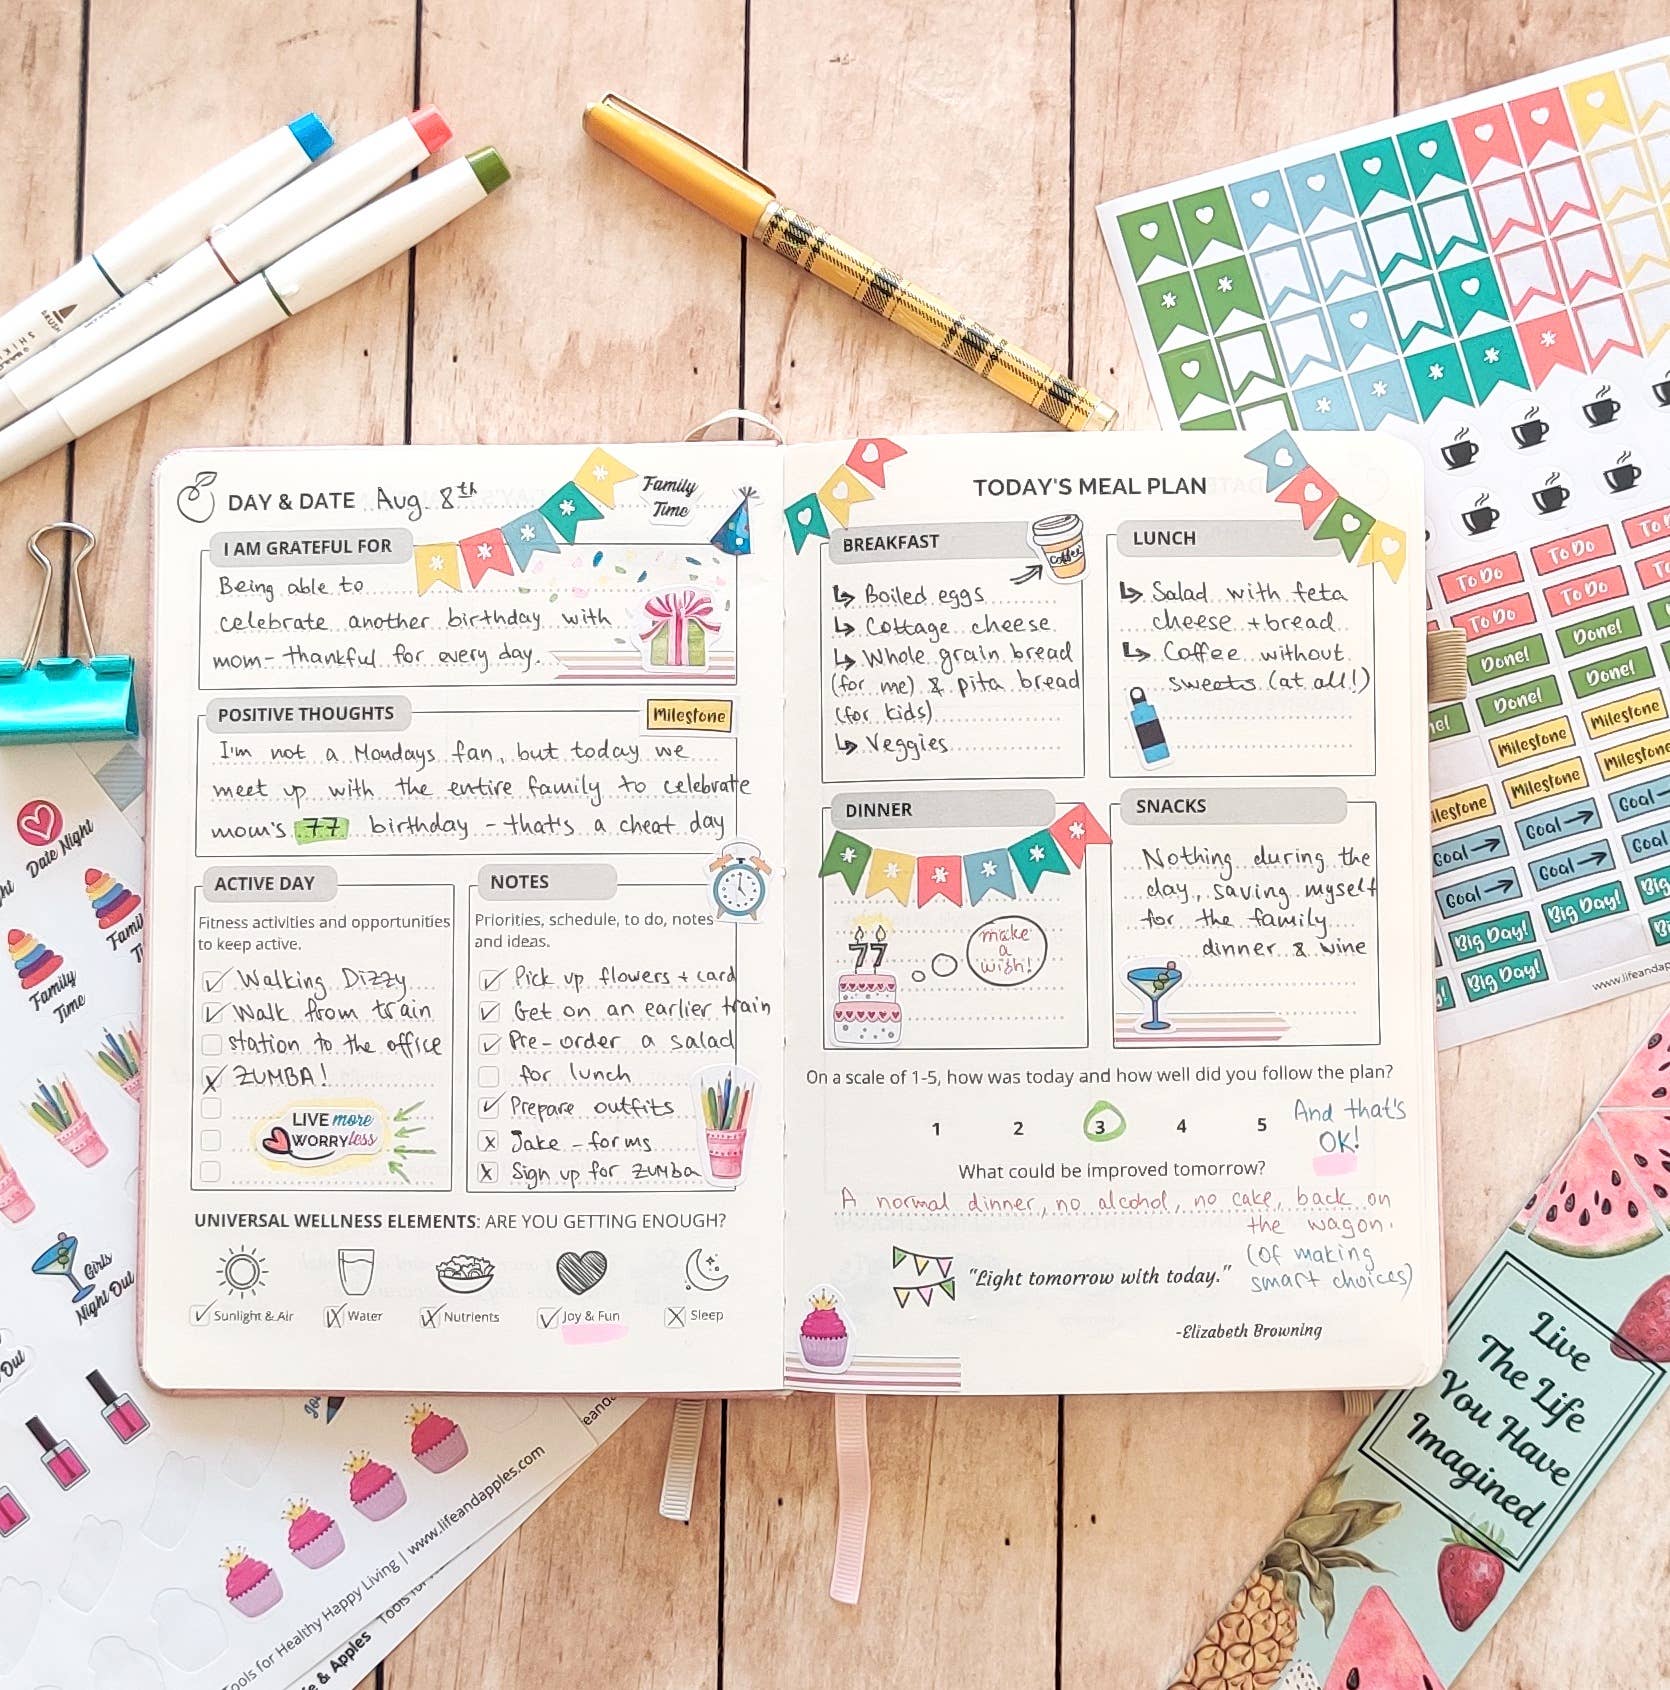 DAY & DATE Aug. 8th
Family
Time
I AM GRATEFUL FOR
Being able to
celebrate another birthday with
mom - thankful for every day.
POSITIVE THOUGHTS
Milestone
I'm not a Mondays fan, but today we
meet up with the entire family to celebrate
mom's 77 birthday - that's a cheat day
ACTIVE DAY
Fitness activities and opportunities
to keep active.
Walking Dizzy
Walk from train
station to the office
ZUMBA!
LIVE more
WORRY less
NOTES
Priorities, schedule, to do, notes
and ideas.
Pick up flowers + card
Get on an earlier train
Pre-order a salad
for lunch
Prepare outfits
Jake - forms
Sign up for ZUMBA
UNIVERSAL WELLNESS ELEMENTS: ARE YOU GETTING ENOUGH?
Sunlight & Air
Water
Nutrients
Joy & Fun
Sleep
TODAY'S MEAL PLAN
BREAKFAST
Coffee
Boiled eggs
Cottage cheese
Whole grain bread
(for me) & pita bread
(for kids)
Veggies
LUNCH
Salad with feta
cheese + bread
Coffee without
sweets (at all!)
DINNER
77
make
a
wish!
SNACKS
Nothing during the
day, saving myself
for the family
dinner & wine
On a scale of 1-5, how was today and how well did you follow the plan?
1 2 3 4 5
And that's
OK!
What could be improved tomorrow?
A normal dinner, no alcohol, no cake, back on
the wagon.
(of making
smart choices)
"Light tomorrow with today."
-Elizabeth Browning
BRUSH
To Do
To Do
To Do
To Do
Done!
Done!
Done!
Done!
Milestone
Milestone
Milestone
Milestone
Goal
Goal
Goal
Goal
Goal
Goal
Big Day!
Big Day!
Big Day!
Date Night
Family
Time
Girls
Night Out
Out
Tools for Healthy Happy Living | www.lifeandapples.com
& Apples
Live
The Life
You Have
Imagined